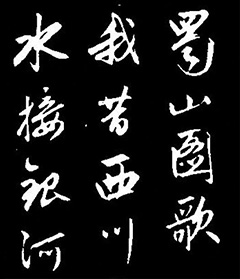 蜀山圖歌
我昔西川
水接銀河